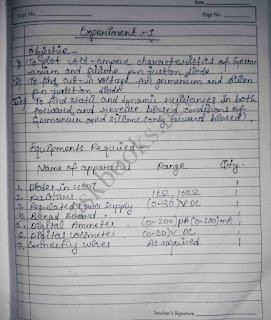 Date
Expt. No.
Page No.
Experiment - 1
Objective -
i) To plot volt-ampere characteristics of Germ-
anium and silicone p-n junction diode
ii) To find cut-in voltage for germanium and silicon
p-n junction diode
iii) To find static and dynamic resistances in both
forward and reverse biased conditions of
Germanium and silicone (forward biased)
Equipments Required
Name of apparatus Range Qty.
1. Diodes in 4007 1
2. Resistors 1Ω, 100Ω 1
3. Regulated Power Supply (0-30)V DC 1
4. Bread Board 1
5. Digital Ammeter (0-200)μA (0-200)mA 1
6. Digital Voltmeter (0-20)V DC
7. Connecting wires As required
Teacher's Signature